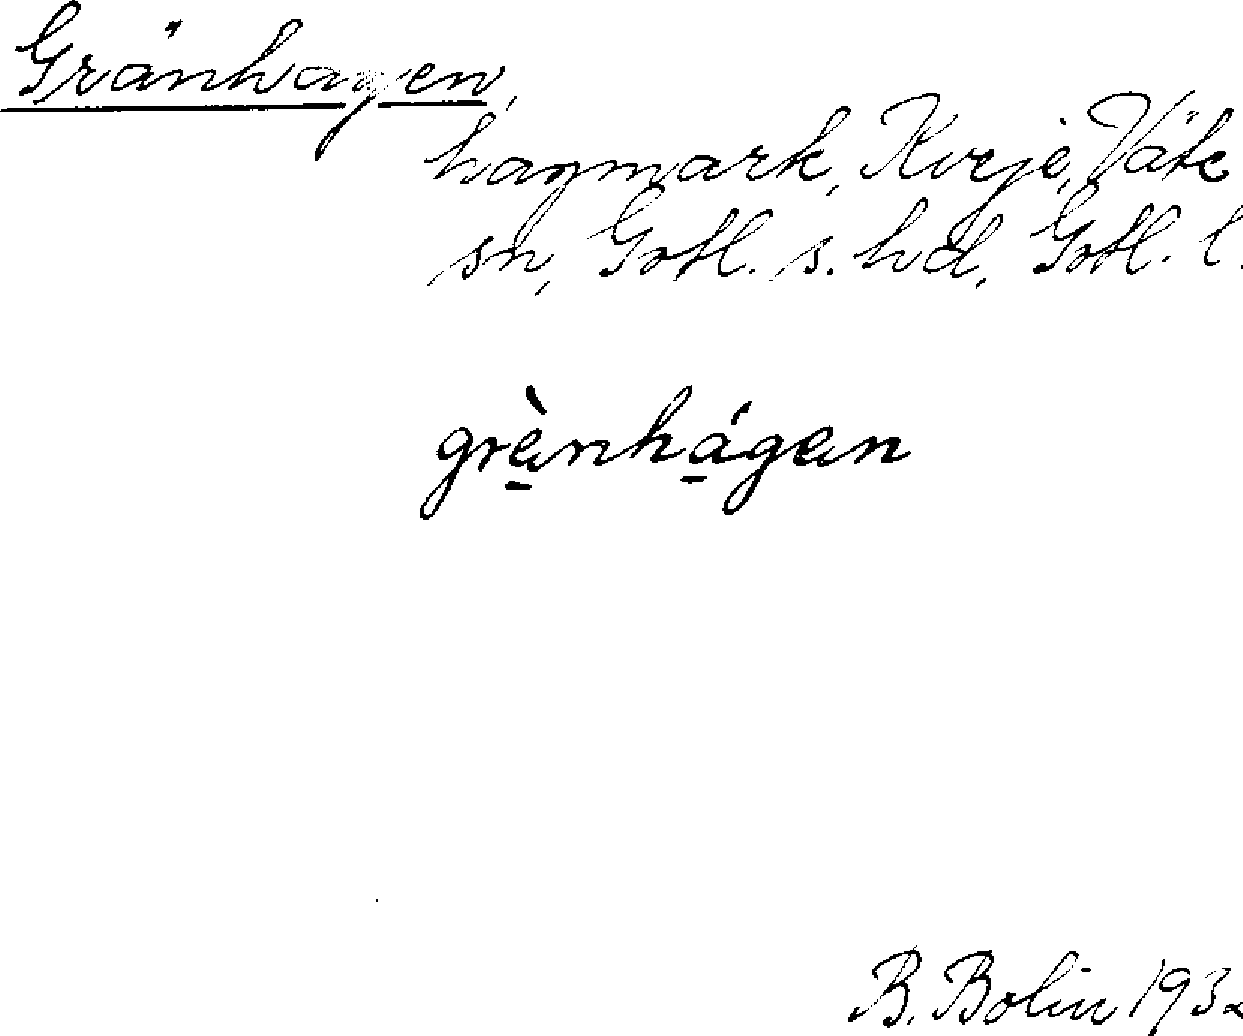 Gränhagen,
hagmark, Kveje, Väte
sn, Gotl. s. hd, Gotl. l.
grènhágen
B. Bolin 1932